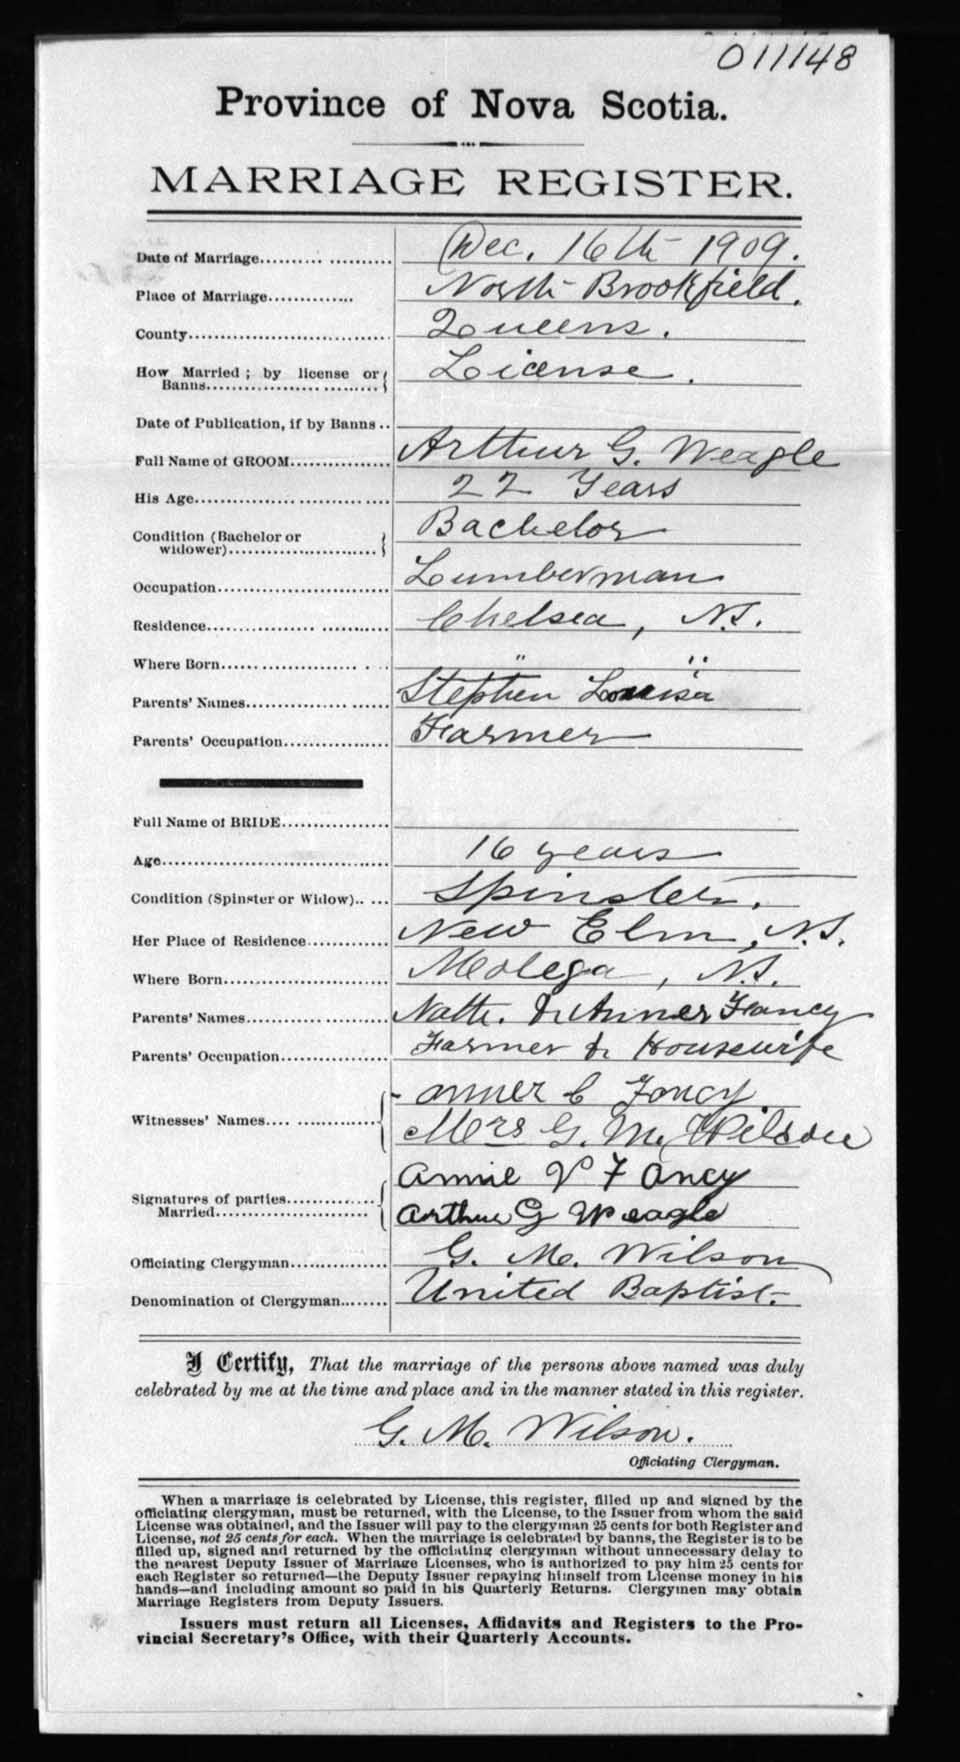 011148
Province of Nova Scotia.
MARRIAGE REGISTER.
Date of Marriage.................... Dec. 16th 1909.
Place of Marriage.............. North Brookfield.
County................................ Queens.
How Married ; by license or
Banns............................ License.
Date of Publication, if by Banns ..
Full Name of GROOM................ Arthur G. Weagle
His Age............................... 22 Years
Condition (Bachelor or
widower)........................ Bachelor
Occupation........................... Lumberman
Residence............................ Chelsea, N.S.
Where Born........................ " "
Parents' Names..................... Stephen Louisa
Parents' Occupation................. Farmer
Full Name of BRIDE.................
Age.................................... 16 years
Condition (Spinster or Widow)..... Spinster.
Her Place of Residence............. New Elm, N.S.
Where Born.......................... Molega, N.S.
Parents' Names...................... Nath. & Anner Fancy
Parents' Occupation................. Farmer & Housewife
Witnesses' Names.................. anner C Fancy
Mrs G. M. Wilson
Annie V Fancy
Signatures of parties..............
Married........................ Arthur G Weagle
Officiating Clergyman............... G. M. Wilson
Denomination of Clergyman........ United Baptist.
I Certify, That the marriage of the persons above named was duly
celebrated by me at the time and place and in the manner stated in this register.
G. M. Wilson.
Officiating Clergyman.
When a marriage is celebrated by License, this register, filled up and signed by the
officiating clergyman, must be returned, with the License, to the Issuer from whom the said
License was obtained, and the Issuer will pay to the clergyman 25 cents for both Register and
License, not 25 cents for each. When the marriage is celebrated by banns, the Register is to be
filled up, signed and returned by the officiating clergyman without unnecessary delay to
the nearest Deputy Issuer of Marriage Licenses, who is authorized to pay him 25 cents for
each Register so returned—the Deputy Issuer repaying himself from License money in his
hands—and including amount so paid in his Quarterly Returns. Clergymen may obtain
Marriage Registers from Deputy Issuers.
Issuers must return all Licenses, Affidavits and Registers to the Pro-
vincial Secretary's Office, with their Quarterly Accounts.